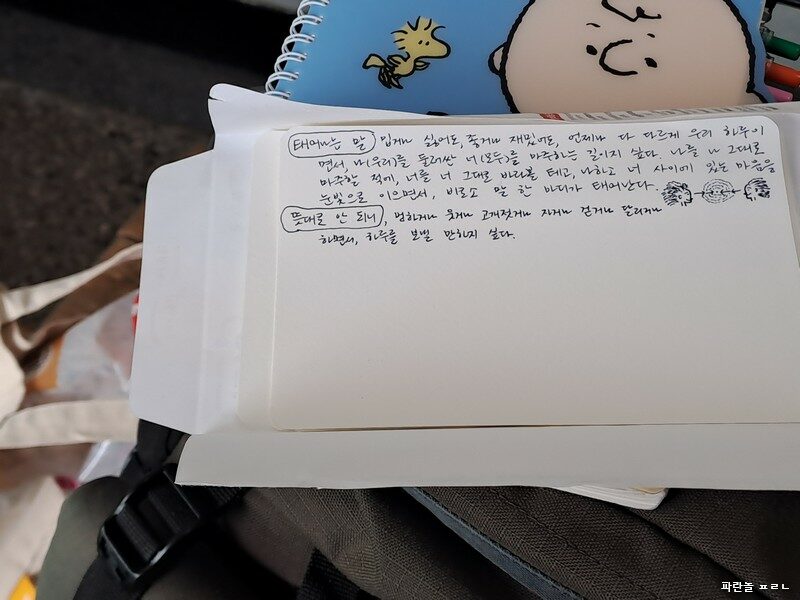 태어나는 말 밉거나 싫어도, 즐겁거나 재밌어도, 언제나 다 다르게 우리 하루이
면서, 나(우리)를 둘러싼 너(모두)를 마주하는 길이지 싶다. 나를 나 그대로
마주할 적에, 너를 너 그대로 바라볼 테고, 나하고 너 사이에 있는 마음을
눈빛으로 이으면서, 비로소 말 한 마디가 태어난다.
뜻대로 안 되니, 멍하거나 웃거나 고개젓거나 자거나 걷거나 달리거나
하면서, 하루를 보낼 만하지 싶다.
파란놀 ㅍㄹㄴ